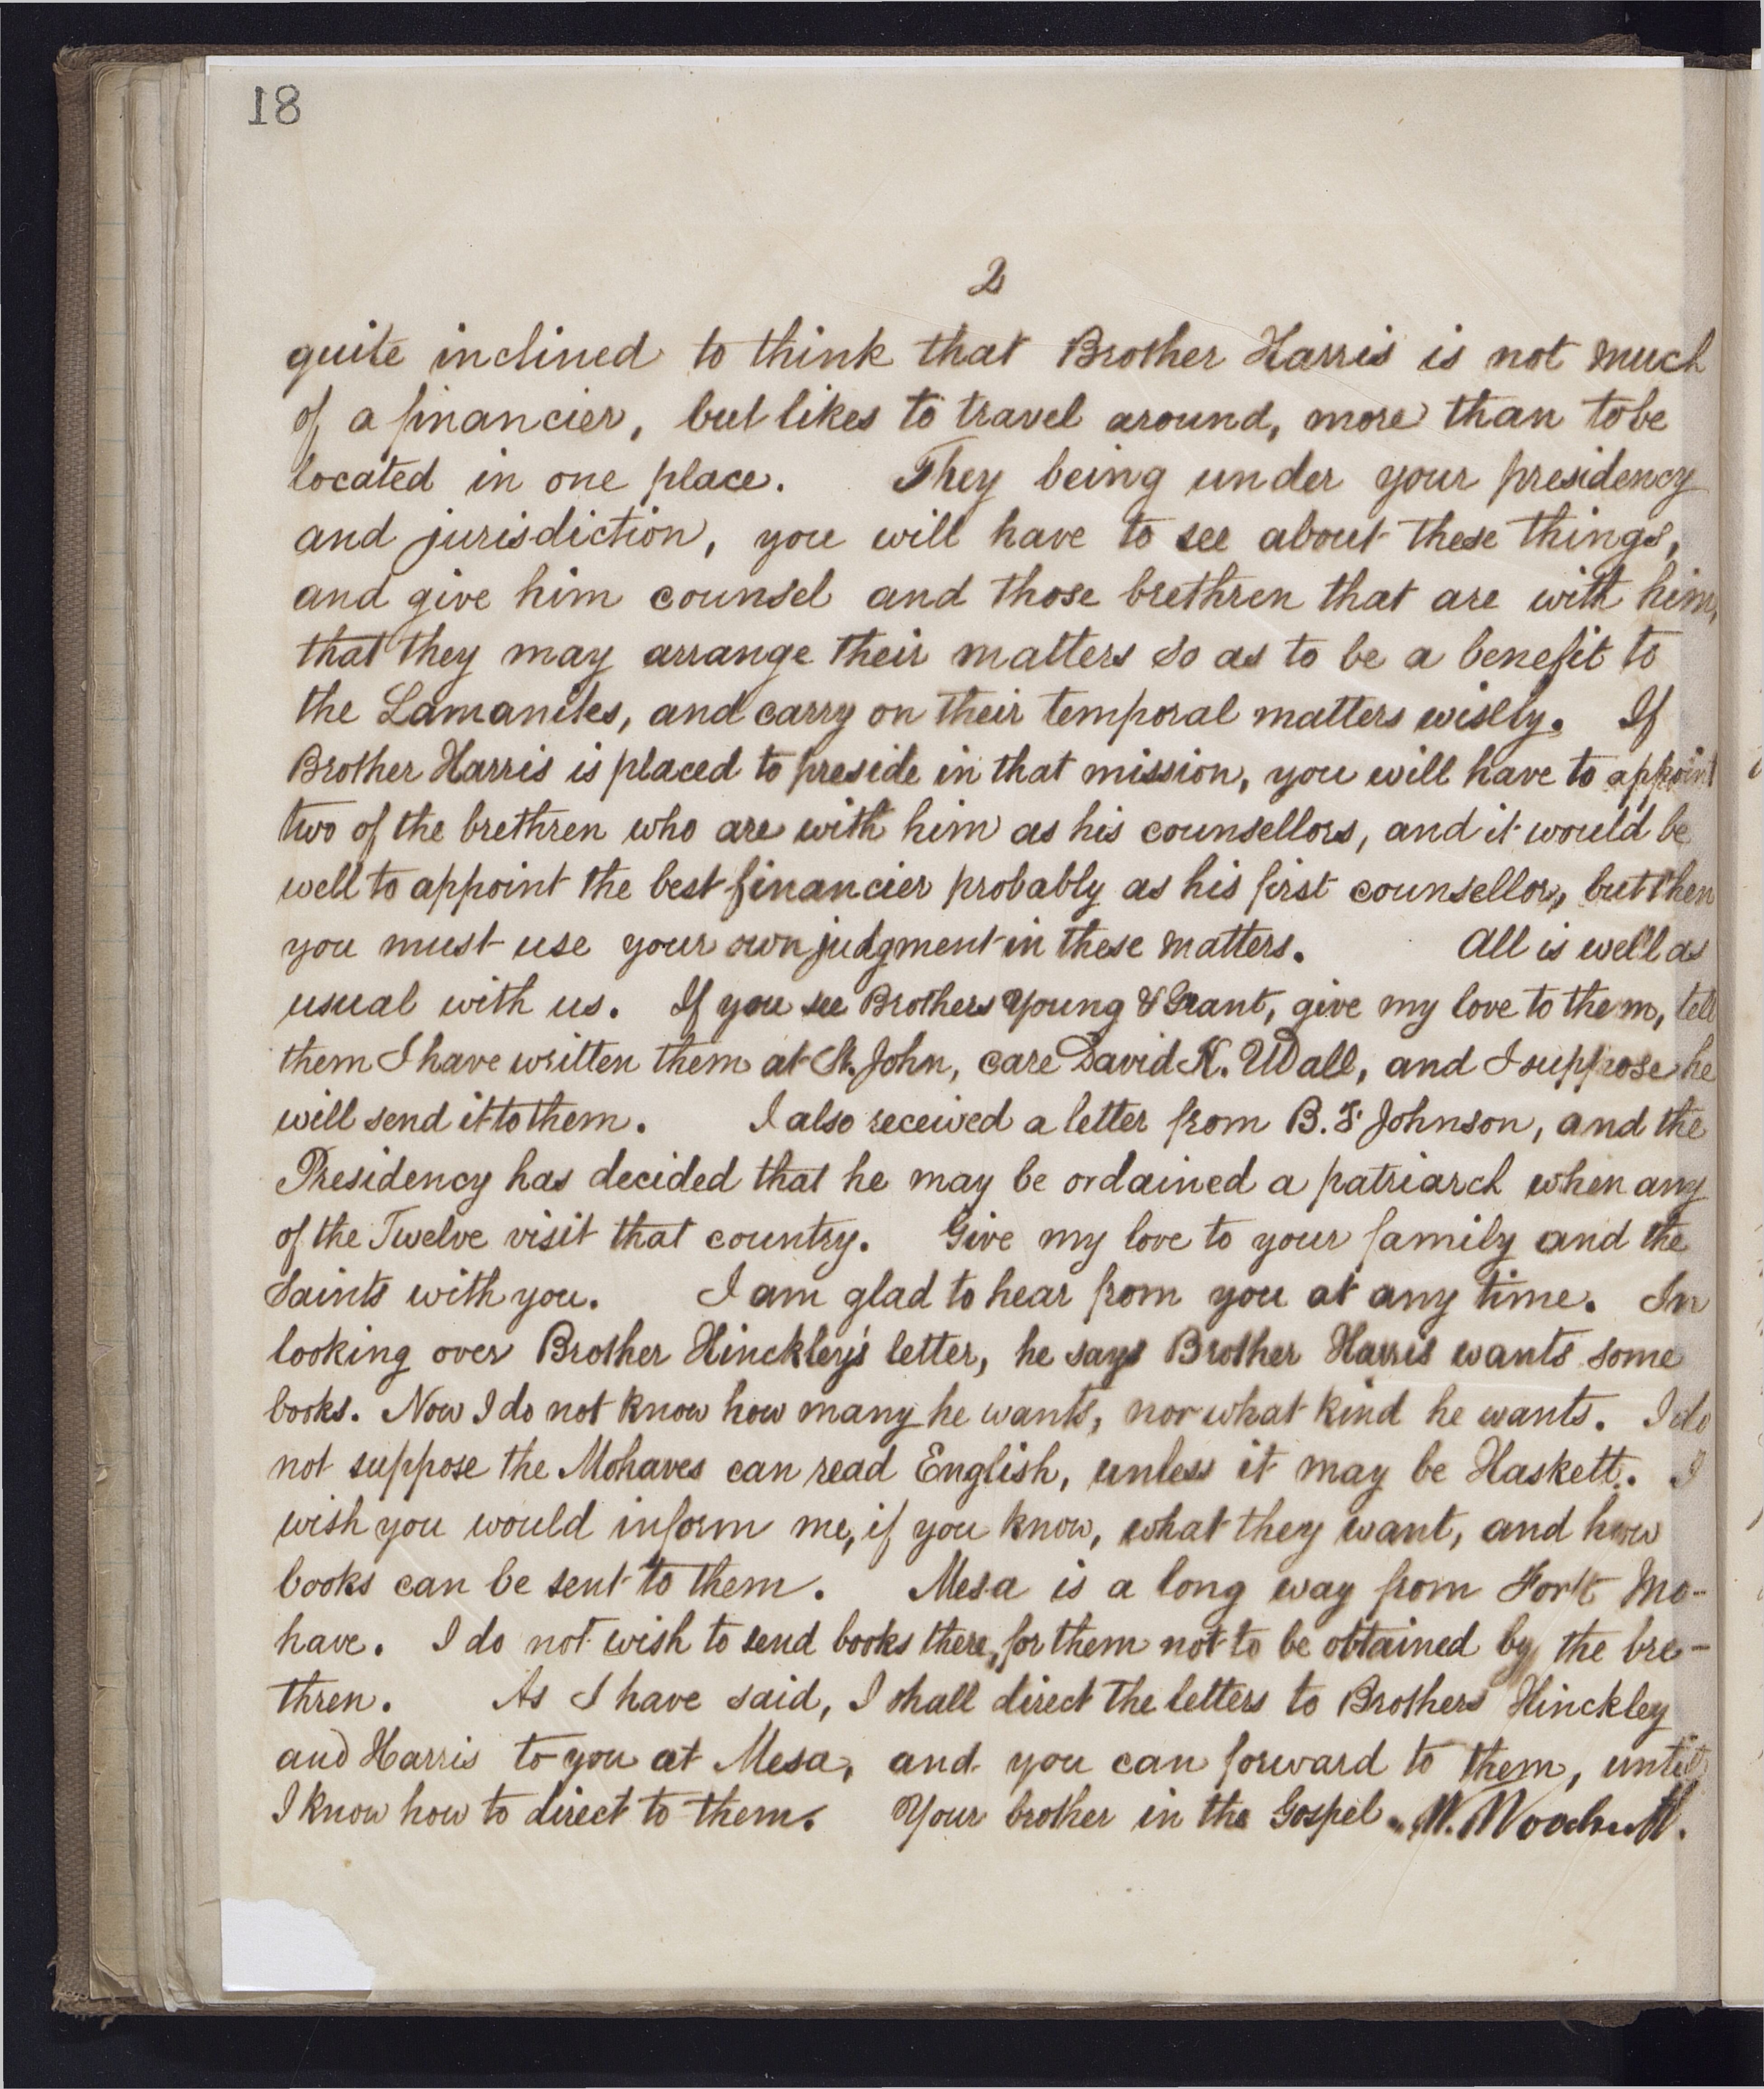 18
2
quite inclined to think that Brother Harris is not much
of a financier, but likes to travel around, more than to be
located in one place. They being under your presidency
and jurisdiction, you will have to see about these things,
and give him counsel and those brethren that are with him,
that they may arrange their matters so as to be a benefit to
the Lamanites, and carry on their temporal matters wisely. If
Brother Harris is placed to preside in that mission, you will have to appoint
two of the brethren who are with him as his counsellors, and it would be
well to appoint the best financier probably as his first counsellor, but then
you must use your own judgment in these matters. All is well as
usual with us. If you see Brothers Young & Grant, give my love to them, tell
them I have written them at St. John, care David K. Udall, and I suppose he
will send it to them. I also received a letter from B. F. Johnson, and the
Presidency has decided that he may be ordained a patriarch when any
of the Twelve visit that country. Give my love to your family and the
Saints with you. I am glad to hear from you at any time. In
looking over Brother Hinckley's letter, he says Brother Harris wants some
books. Now I do not know how many he wants, nor what kind he wants. I do
not suppose the Mohaves can read English, unless it may be Haskett. I
wish you would inform me, if you know, what they want, and how
books can be sent to them. Mesa is a long way from Fort Mo-
have. I do not wish to send books there, for them not to be obtained by the bre-
thren. As I have said, I shall direct the letters to Brothers Hinckley
and Harris to you at Mesa, and you can forward to them, until
I know how to direct to them. Your brother in the Gospel. W. Woodruff.